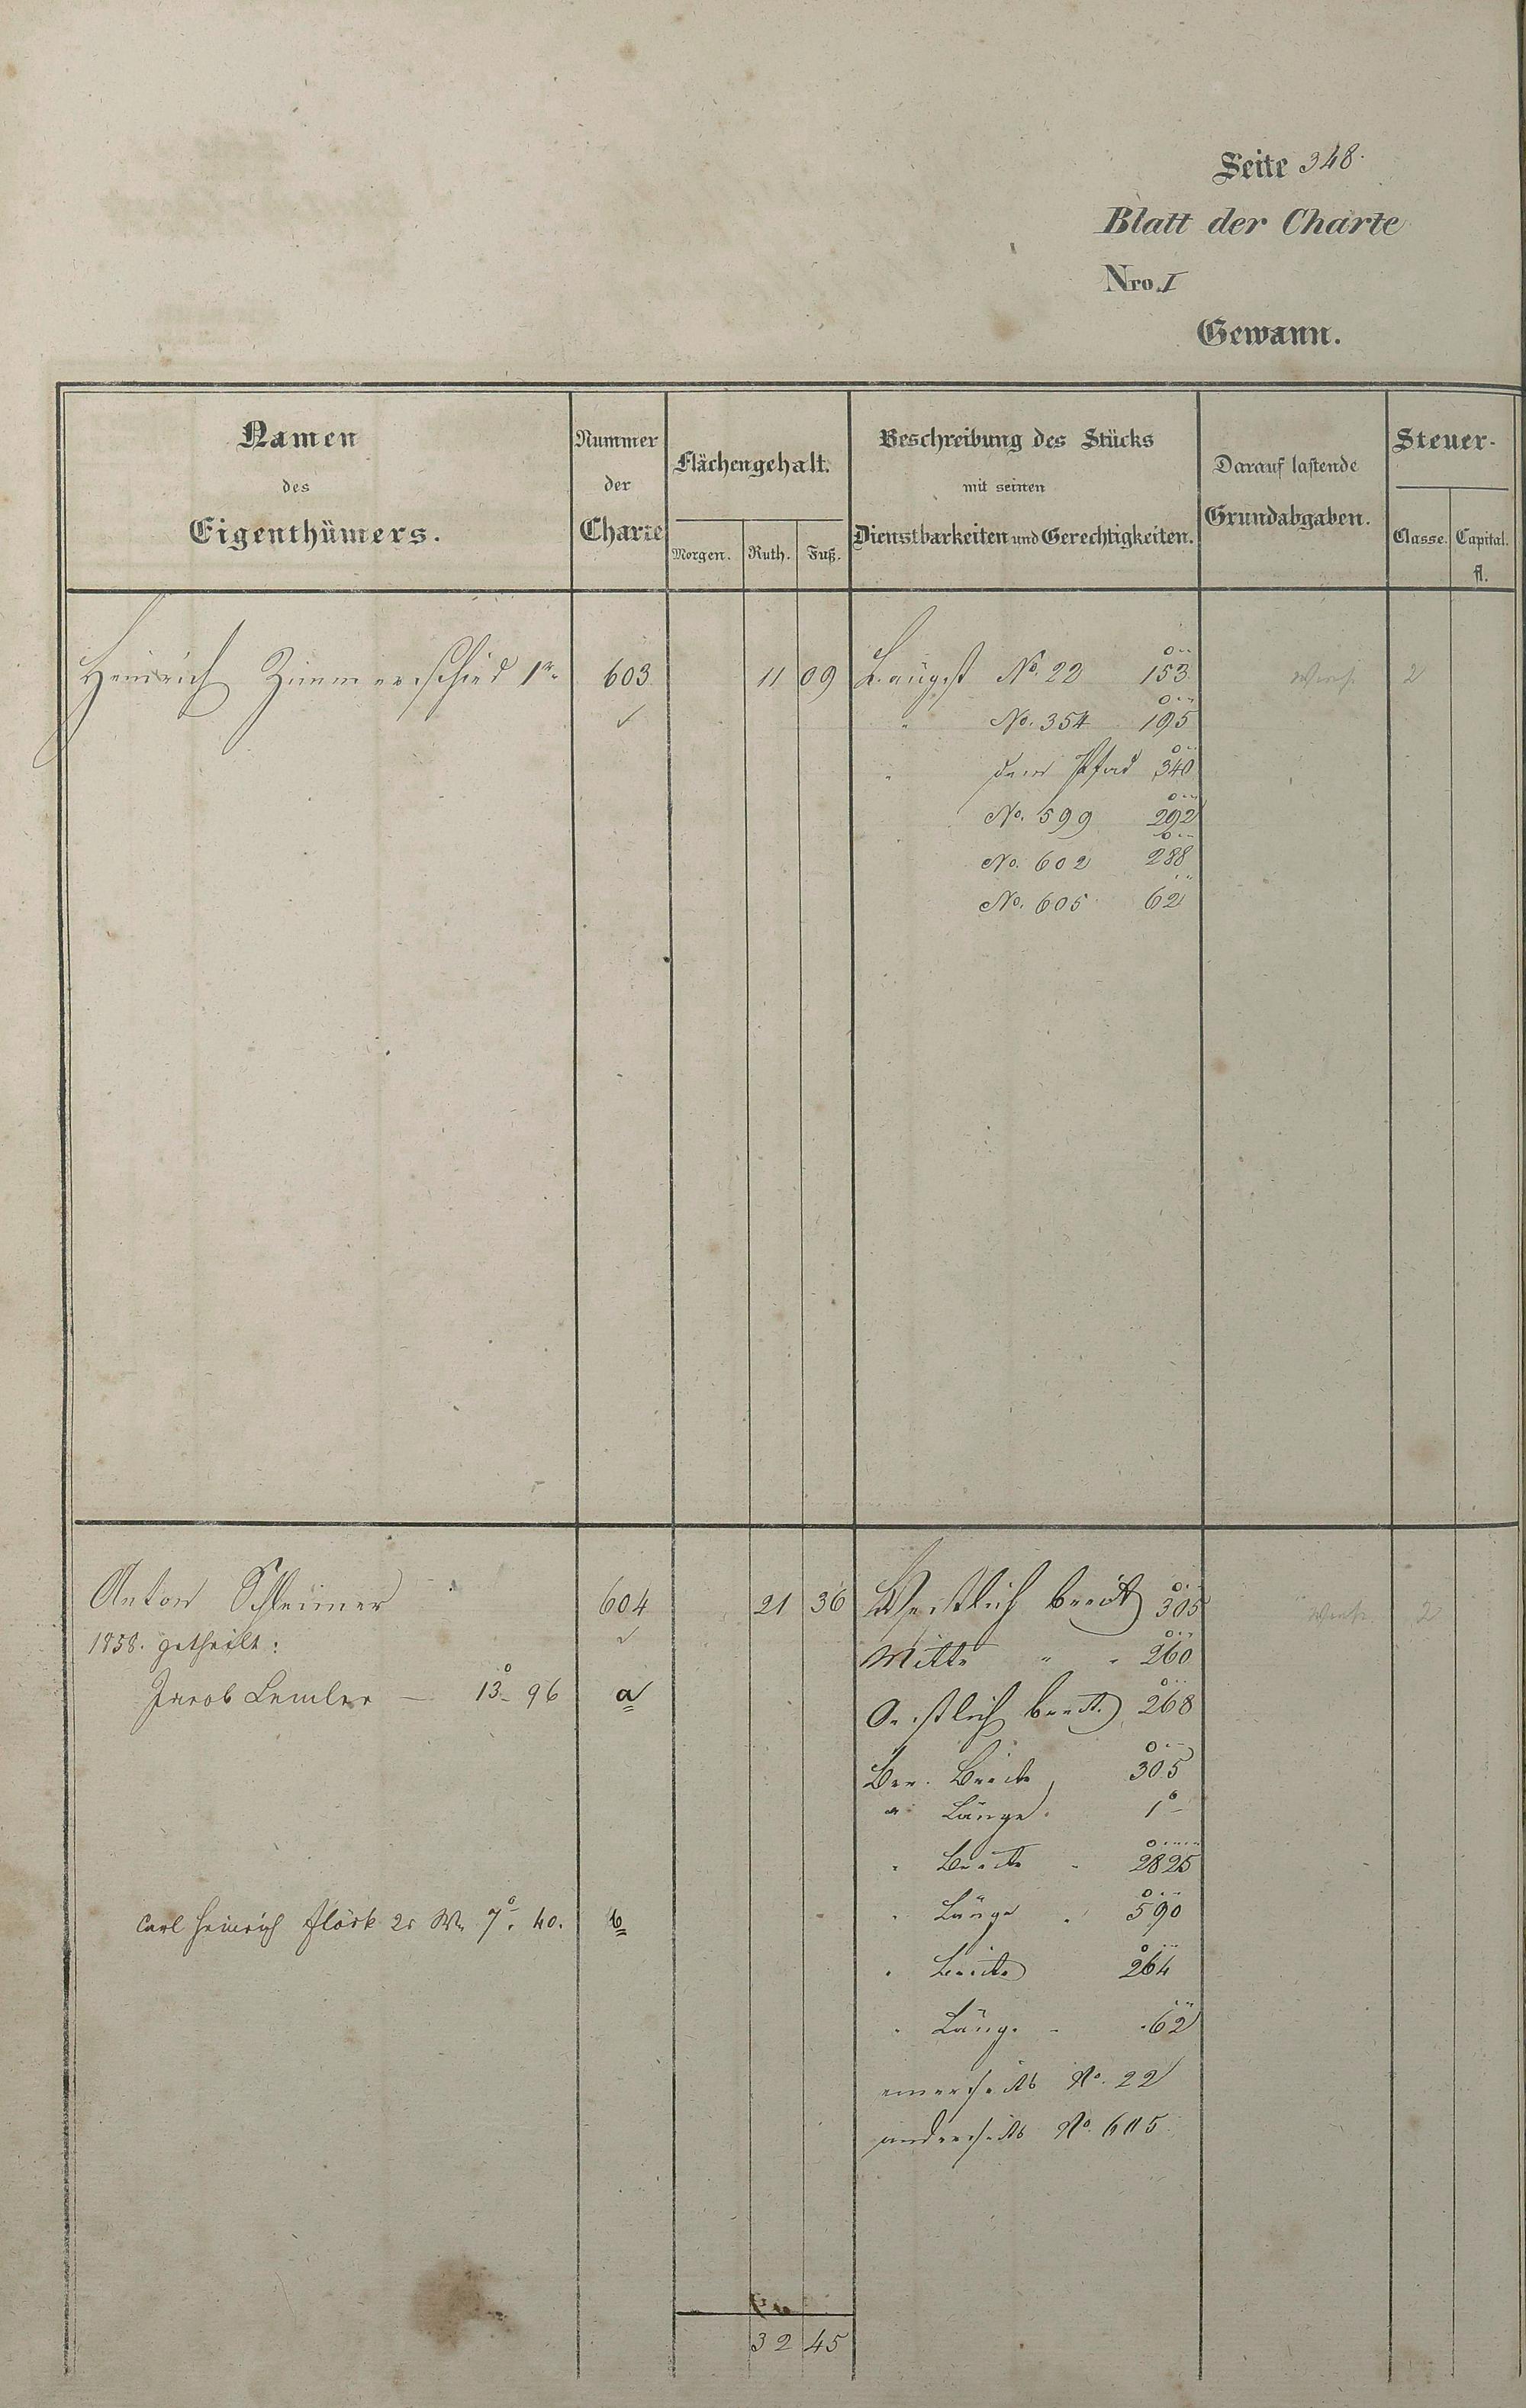 Seite 348.
Blatt der Charte
Nro. I
Gewann.
Namen des Eigenthümers.
Nummer der Charte
Flächengehalt.
Morgen. Ruth. Fuß.
Beschreibung des Stücks mit seinen Dienstbarkeiten und Gerechtigkeiten.
Darauf lastende Grundabgaben.
Steuer-
Classe. Capital. fl.
Heinrich Zimmerschied 1r. 603 11 09 Längst No. 22 153 2
" No. 354 195
" dem Pfad 340
No. 599 292
No. 602 288
No. 605 62
Anton Schleimer 604 21 36 Westlich breit 305 2
1858. getheilt: Mitte " " 260
Jacob Lemler — 13° 96 a Oestlich breit 268
Breite 305
" Länge 1°
" Breite " 2825
Carl Heinrich Flöck 2r W. 7° 40. b " Länge " 590
" Breite 264
" Länge - 62
einerseits No. 22
anderseits No. 605
32 45